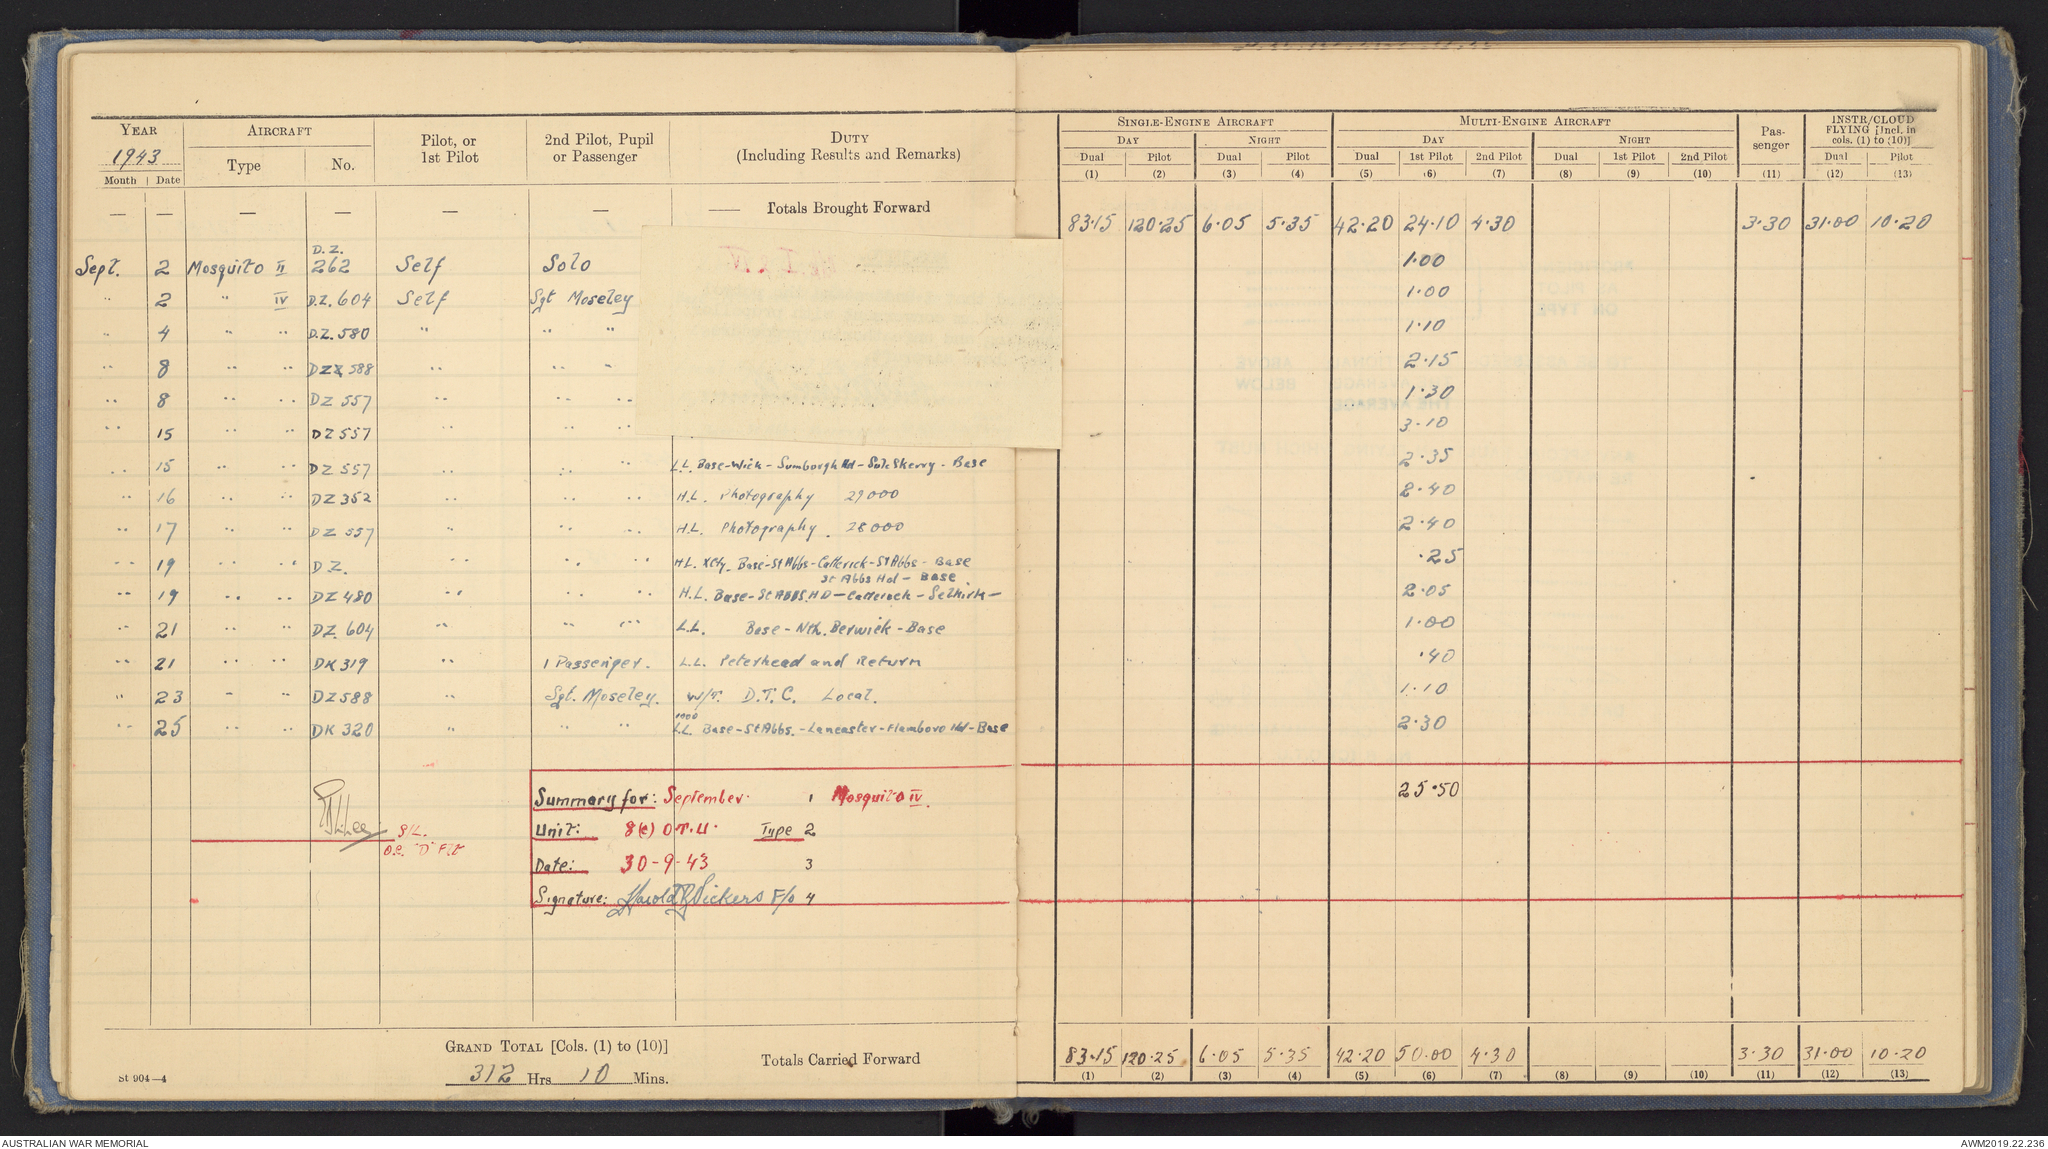 YEAR 1943 AIRCRAFT Pilot, or 1st Pilot 2nd Pilot, Pupil or Passenger DUTY (Including Results and Remarks) SINGLE-ENGINE AIRCRAFT MULTI-ENGINE AIRCRAFT Passenger INSTR/CLOUD FLYING [Incl. in cols. (1) to (10)]
DAY NIGHT DAY NIGHT
Month Date Type No. Dual Pilot Dual Pilot Dual 1st Pilot 2nd Pilot Dual 1st Pilot 2nd Pilot Dual Pilot
(1) (2) (3) (4) (5) (6) (7) (8) (9) (10) (11) (12) (13)
— — — — — — — Totals Brought Forward 83·15 120·25 6·05 5·35 42·20 24·10 4·30 3·30 31·00 10·20
Sept. 2 Mosquito II D.Z. 262 Self Solo 1·00
" 2 " IV D.Z. 604 Self Sgt Moseley 1·00
" 4 " " D.Z. 580 " " " 1·10
" 8 " " DZ 588 " " " 2·15
" 8 " " DZ 557 " " " 1·30
" 15 " " DZ 557 " " " 3·10
" 15 " " DZ 557 " " L.L. Base-Wick-Sumborgh Hd-Sule Skerry-Base 2·35
" 16 " " DZ 352 " " " H.L. Photography 29000 2·40
" 17 " " DZ 557 " " " H.L. Photography. 28000 2·40
" 19 " " DZ. " " " H.L. XCty. Base-St Abbs-Catterick-St Abbs-Base ·25
St Abbs Hd - Base
" 19 " " DZ 480 " " " H.L. Base-St ABBS. HD-Catterick-Selkirk- 2·05
" 21 " " DZ. 604 " " " L.L. Base-Nth. Berwick-Base 1·00
" 21 " " DK 319 " 1 Passenger. L.L. Peterhead and Return ·40
" 23 " " DZ 588 " Sgt. Moseley. W/T. D.T.C. Local. 1·10
1000
" 25 " " DK 320 " " " L.L. Base-St Abbs.-Lancaster-Flamboro Hd-Base 2·30
Summary for: September. 1 Mosquito IV. 25·50
S/L. Unit: 8(c) O.T.U. Type 2
O.C. "D" Flt Date: 30-9-43 3
Signature: Harold R Vickers F/O 4
GRAND TOTAL [Cols. (1) to (10)] Totals Carried Forward 83·15 120·25 6·05 5·35 42·20 50·00 4·30 3·30 31·00 10·20
312 Hrs 10 Mins. (1) (2) (3) (4) (5) (6) (7) (8) (9) (10) (11) (12) (13)
St 904—4
AUSTRALIAN WAR MEMORIAL AWM2019.22.236